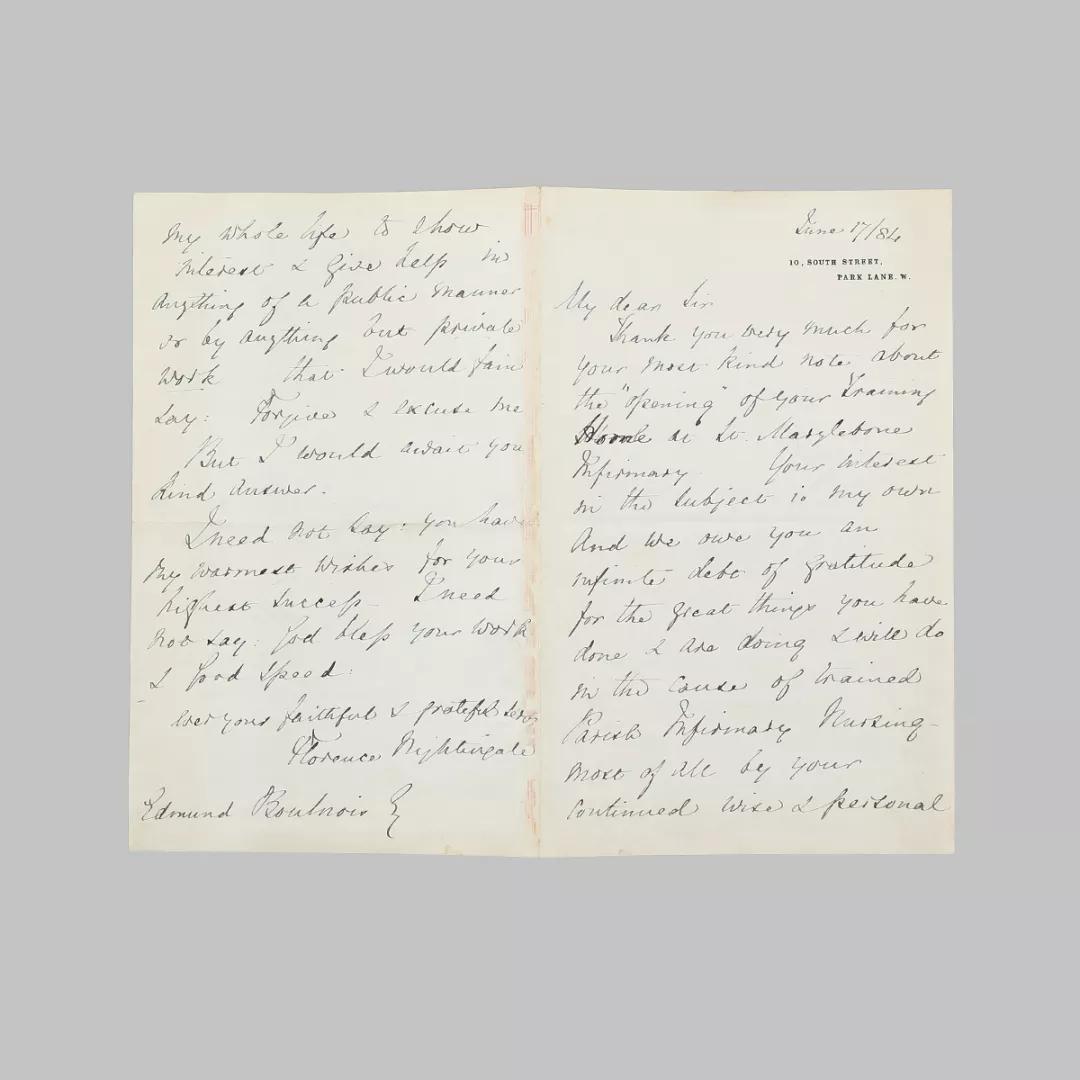 June 17/84
10, SOUTH STREET,
PARK LANE. W.
My dear Sir
Thank you very much for
your most kind note about
the "opening" of your Training
Home at St. Marylebone
Infirmary Your interest
in the subject is my own
And we owe you an
infinite debt of gratitude
for the great things you have
done & are doing & will do
in the cause of trained
Parish Infirmary Nursing -
most of all by your
continued wise & personal
My whole life to show
interest & give help in
anything of a public manner
or by anything but private
work that I would fain
say: Forgive & excuse me
But I would await you
kind answer.
I need not say: you have
my warmest wishes for your
highest success - I need
not say: God bless your work
& Good speed:
ever your faithful & grateful
Florence Nightingale
Edmund Boulnois